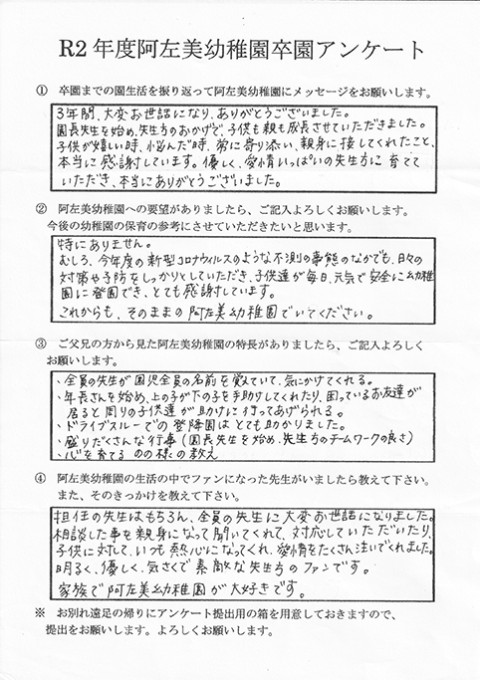 R2年度阿左美幼稚園卒園アンケート
① 卒園までの園生活を振り返って阿左美幼稚園にメッセージをお願いします。
3年間、大変お世話になり、ありがとうございました。
園長先生を始め、先生方のおかげで、子供も親も成長させていただきました。
子供が嬉しい時、悩んだ時、常に寄り添い、親身に接してくれたこと、
本当に感謝しています。優しく、愛情いっぱいの先生方に育てて
いただき、本当にありがとうございました。
② 阿左美幼稚園への要望がありましたら、ご記入よろしくお願いします。
今後の幼稚園の保育の参考にさせていただきたいと思います。
特にありません。
むしろ、今年度の新型コロナウィルスのような不測の事態のなかでも、日々の
対策や予防をしっかりとしていただき、子供達が毎日、元気で安全に幼稚
園に登園でき、とても感謝しています。
これからも、そのままの阿左美幼稚園でいてください。
③ ご父兄の方から見た阿左美幼稚園の特長がありましたら、ご記入よろしく
お願いします。
・全員の先生が園児全員の名前を覚えていて、気にかけてくれる。
・年長さんを始め、上の子が下の子を手助けしてくれたり、困っているお友達が
居ると周りの子供達が助けに行ってあげられる。
・ドライブスルーでの登降園はとても助かりました。
・盛りだくさんな行事(園長先生を始め、先生方のチームワークの良さ)
・心を育てるののの様の教え
④ 阿左美幼稚園の生活の中でファンになった先生がいましたら教えて下さい。
また、そのきっかけを教えて下さい。
担任の先生はもちろん、全員の先生に大変お世話になりました。
相談した事を親身になって聞いてくれて、対応していただいたり、
子供に対して、いつも熱心になってくれ、愛情をたくさん注いでくれました。
明るく、優しく、気さくで素敵な先生方のファンです。
家族で阿左美幼稚園が大好きです。
※ お別れ遠足の帰りにアンケート提出用の箱を用意しておきますので、
提出をお願いします。よろしくお願いします。